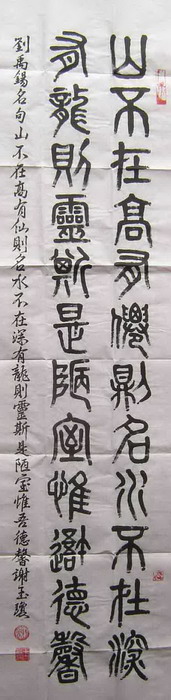 山不在高有僊則名水不在深
有龍則靈斯是陋室惟吾德馨
劉禹錫名句山不在高有仙則名水不在深有龍則靈斯是陋室惟吾德馨謝玉